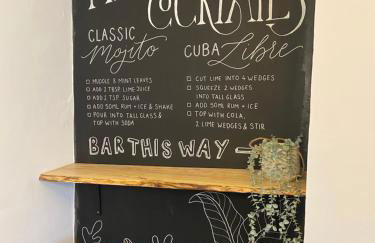 COCKTAILS
CLASSIC
Mojito
□ MUDDLE 8 MINT LEAVES
□ ADD 2 TBSP LIME JUICE
□ ADD 2 TSP. SUGAR
□ ADD 50ML RUM + ICE & SHAKE
□ POUR INTO TALL GLASS &
TOP WITH SODA
CUBA Libre
□ CUT LIME INTO 4 WEDGES
□ SQUEEZE 2 WEDGES
INTO TALL GLASS
□ ADD 50ML RUM + ICE
□ TOP WITH COLA,
2 LIME WEDGES & STIR
BAR THIS WAY